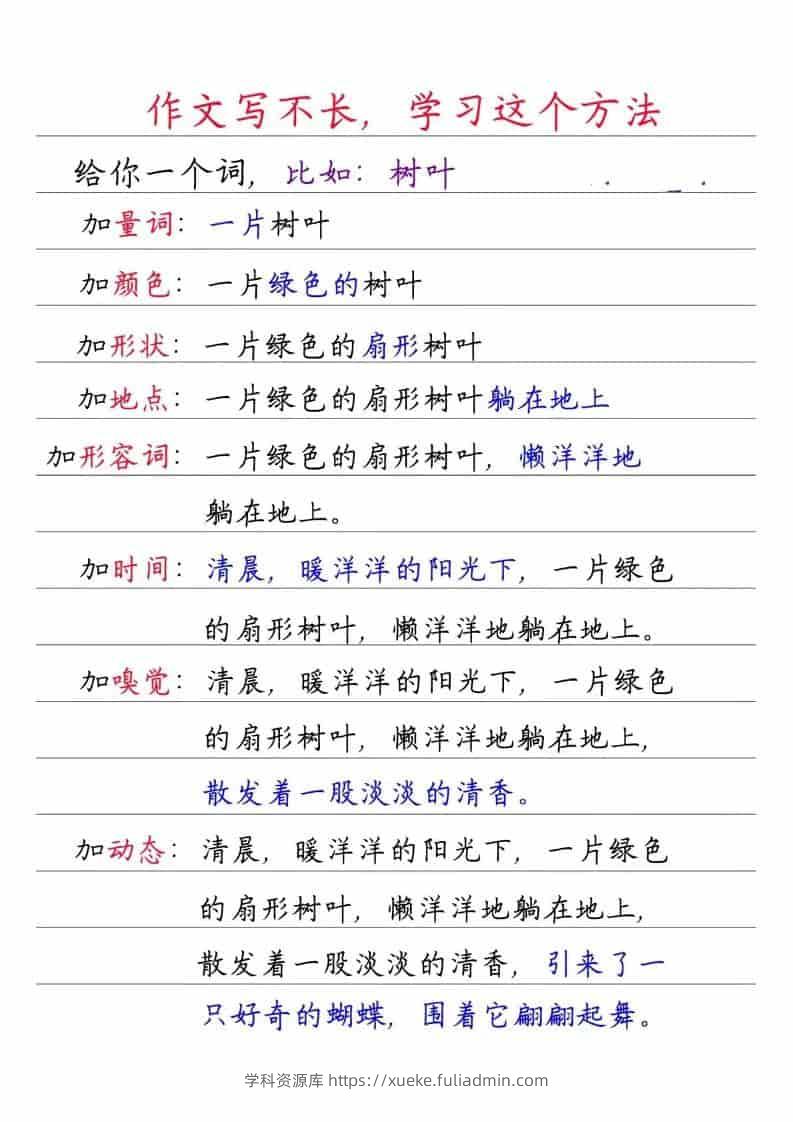 作文写不长，学习这个方法
给你一个词，比如：树叶
加量词：一片树叶
加颜色：一片绿色的树叶
加形状：一片绿色的扇形树叶
加地点：一片绿色的扇形树叶躺在地上
加形容词：一片绿色的扇形树叶，懒洋洋地
躺在地上。
加时间：清晨，暖洋洋的阳光下，一片绿色
的扇形树叶，懒洋洋地躺在地上。
加嗅觉：清晨，暖洋洋的阳光下，一片绿色
的扇形树叶，懒洋洋地躺在地上，
散发着一股淡淡的清香。
加动态：清晨，暖洋洋的阳光下，一片绿色
的扇形树叶，懒洋洋地躺在地上，
散发着一股淡淡的清香，引来了一
只好奇的蝴蝶，围着它翩翩起舞。
学科资源库 https://xueke.fuliadmin.com